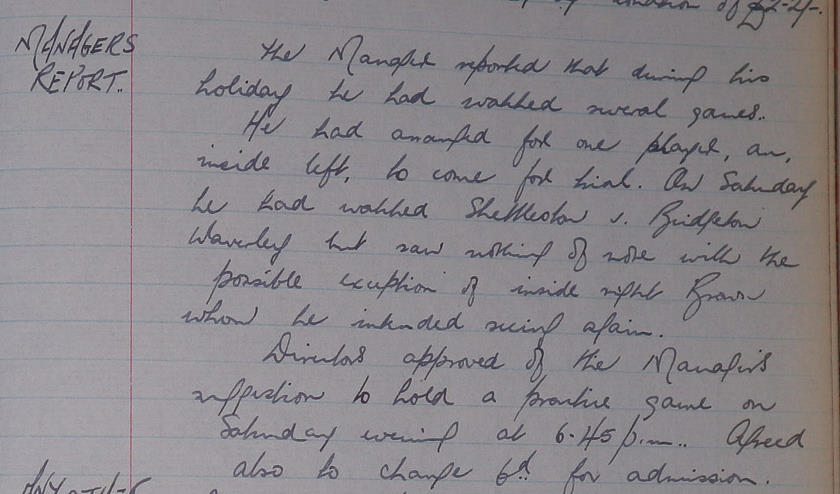 condition of £2-2/-.
MANAGERS
REPORT.
The Manager reported that during his
holiday he had watched several games.
He had arranged for one player, an,
inside left, to come for trial. On Saturday
he had watched Shettleston v. Bridgeton
Waverley but saw nothing of note with the
possible exception of inside right Brown
whom he intended seeing again.
Directors approved of the Manager's
suggestion to hold a practice game on
Saturday evening at 6.45 p.m.. Agreed
also to change 6d for admission.